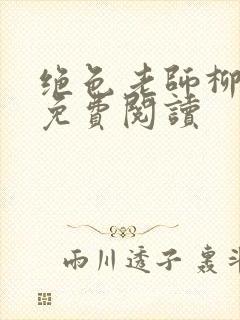 绝色老师柳
免費閱讀
雨川透子